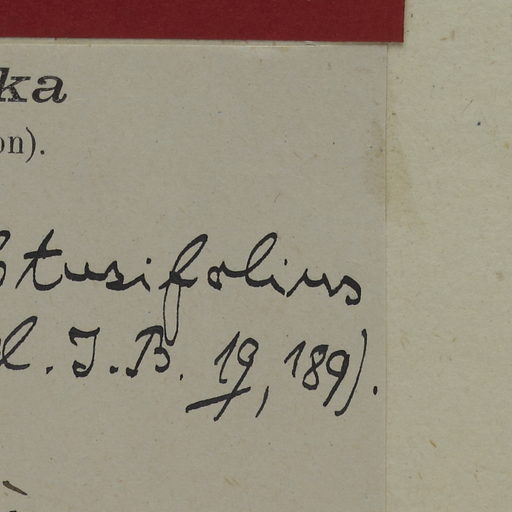 ka
on).
btusifolius
l. J. B. 19, 189).